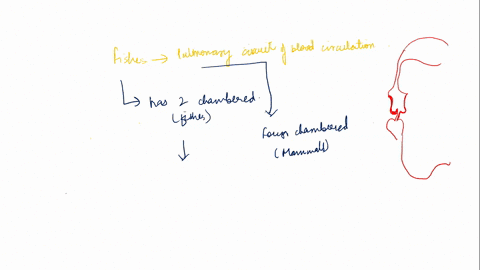 fishes → Pulmonary circuit of blood circulation
has 2 chambered
(fishes)
Four chambered
(Mammals)